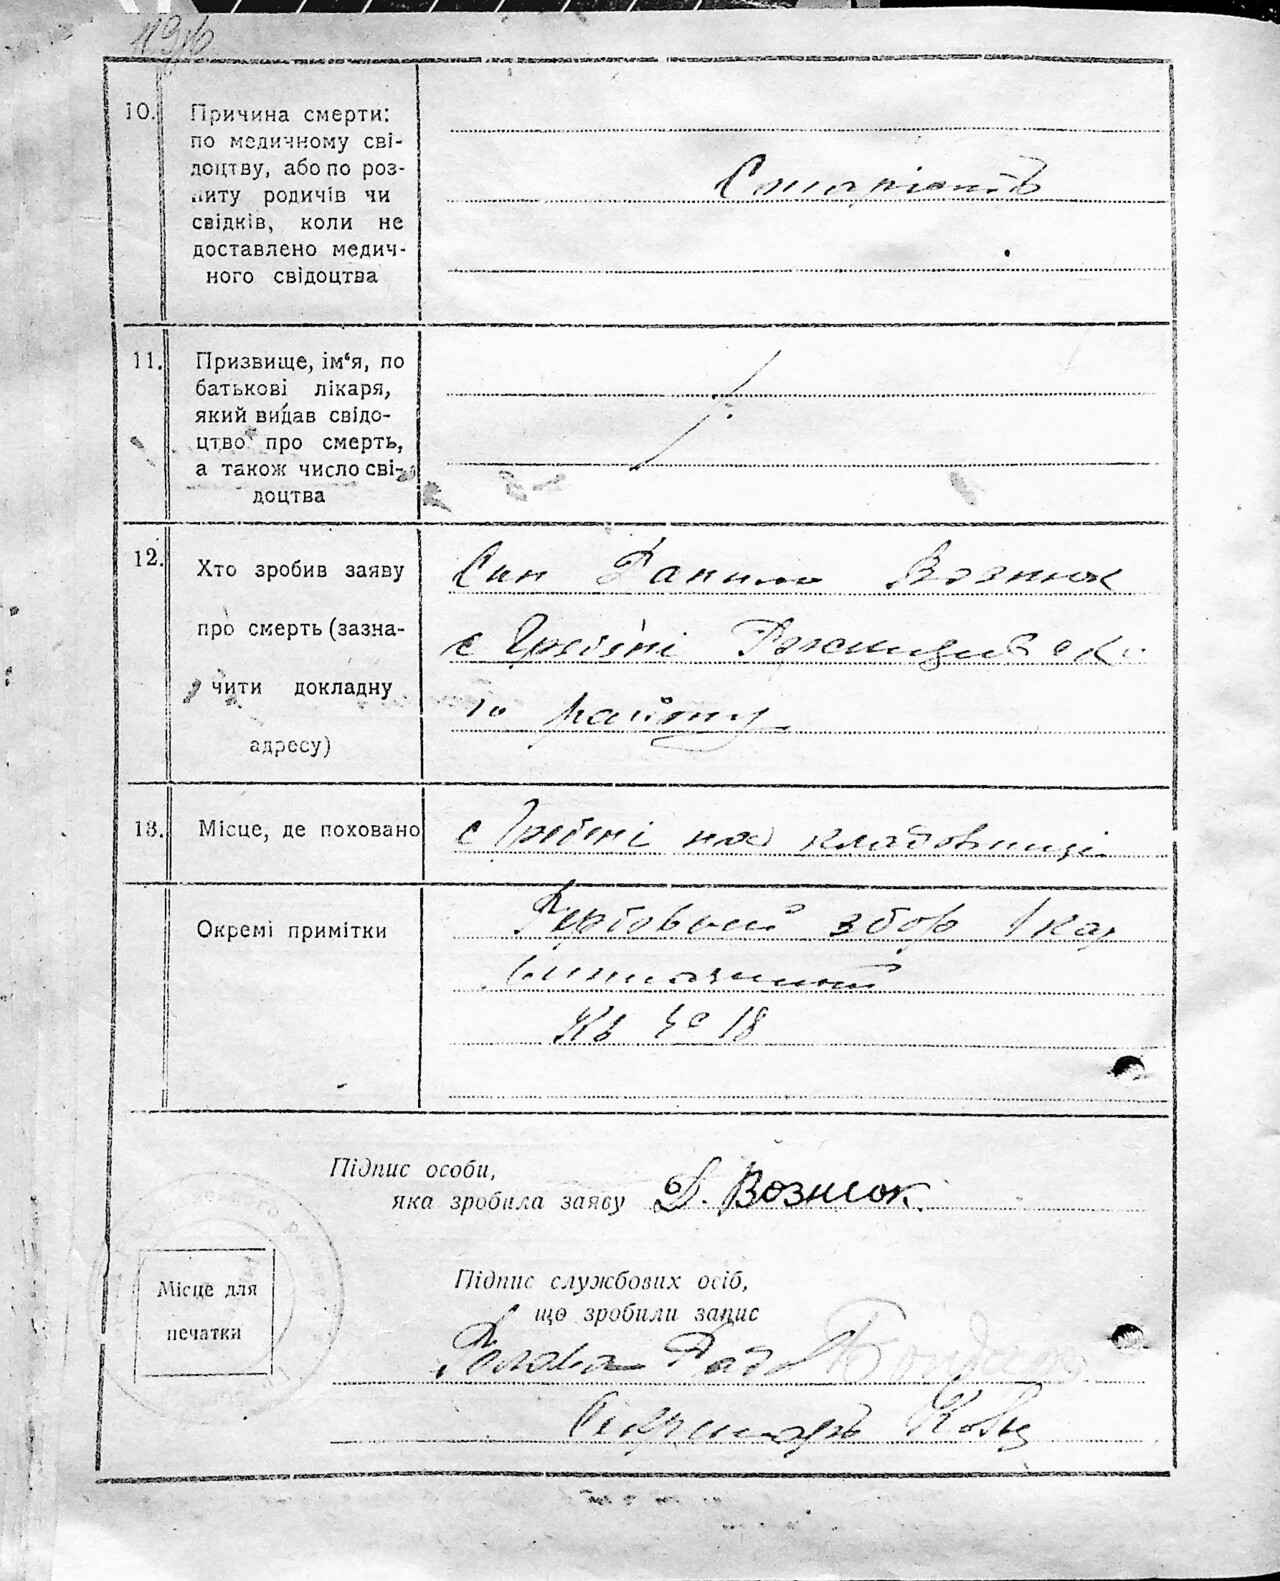 10.
Причина смерти:
по медичному сві-
доцтву, або по роз-
питу родичів чи
свідків, коли не
доставлено медич-
ного свідоцтва
Старість
11.
Призвище, ім'я, по
батькові лікаря,
який видав свідо-
цтво про смерть,
а також число сві-
доцтва
12.
Хто зробив заяву
про смерть (зазна-
чити докладну
адресу)
Син Данило Вознюк
с Гребені Ржищівсько
го району
13.
Місце, де поховано
с Гребені на кладовищі
Окремі примітки
Гербовий збор 1 кар
Кв № 18
Підпис особи,
яка зробила заяву Д. Вознюк
Місце для
печатки
Підпис службових осіб,
що зробили запис
Голова Ради
Секретарь